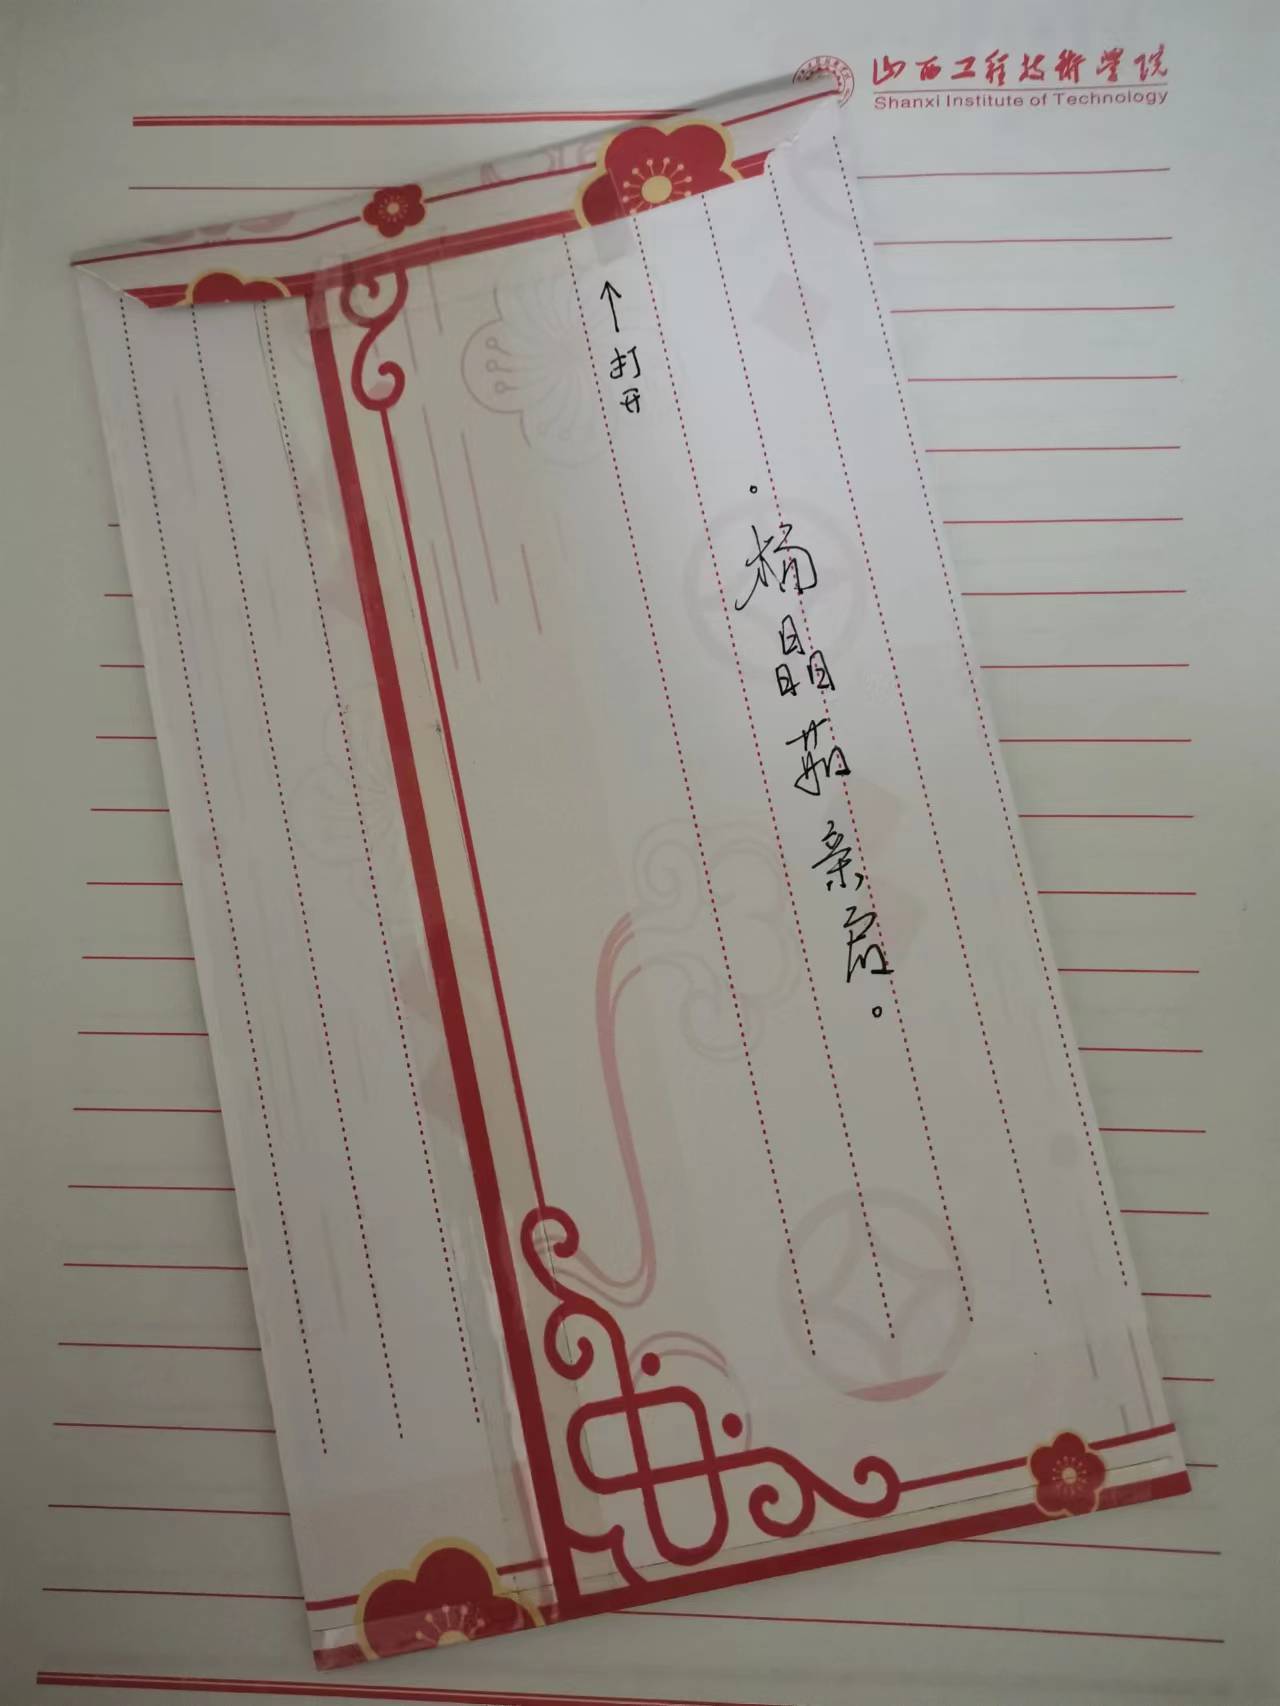 山西工程技術學院
Shanxi Institute of Technology
↑打开
·杨晶茹亲启。